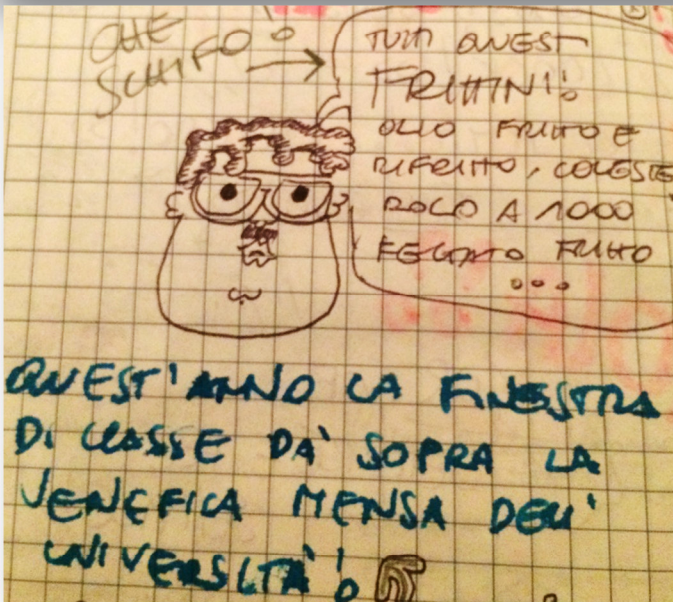 CHE
SCHIFO!
TUTTI QUEST
FRITTINI!
OLIO FRITTO E
RIFRITTO, COLESTE
ROLO A 1000
FEGATO FRITTO
...
QUEST'ANNO LA FINESTRA
DI CLASSE DA' SOPRA LA
VENEFICA MENSA DELL'
UNIVERSITA'!